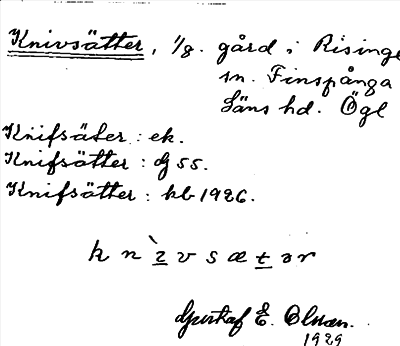 Knivsätter, 1/8. gård i Risinge
sn. Finspånga
Läns hd. Ögl
Knifsäter : ek.
Knifsätter : dj ss.
Knifsätter : kb 1926.
k n ì v s æ t ə r
Gustaf E. Olsson.
1929